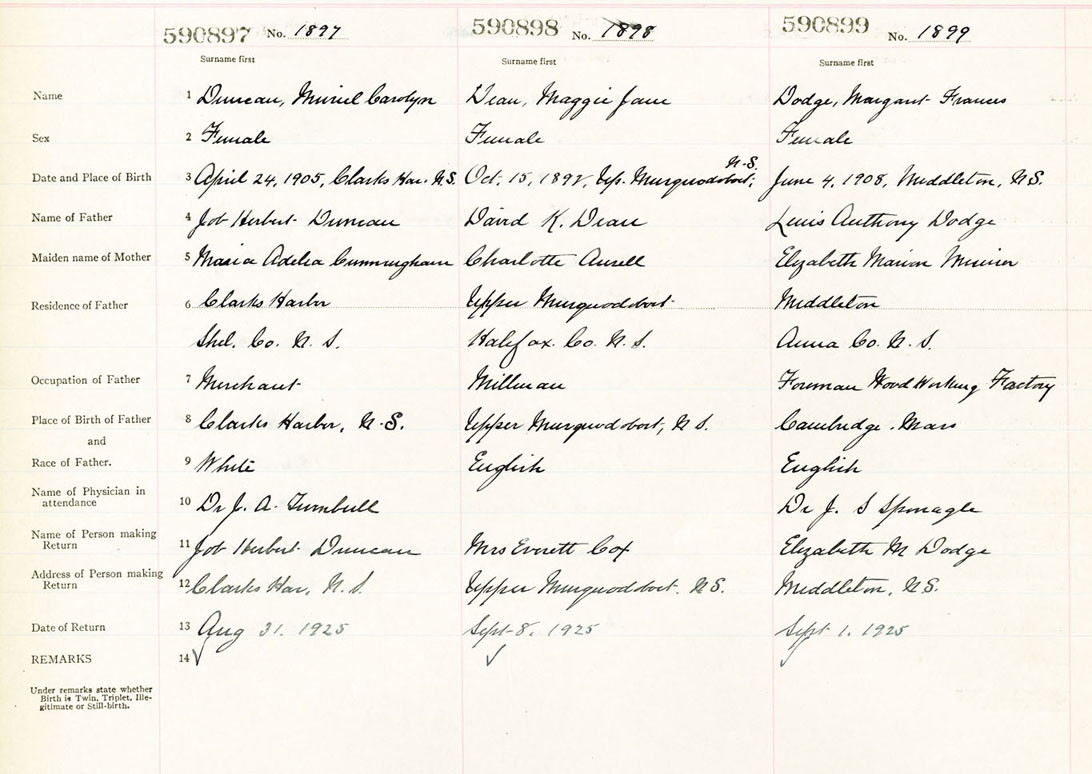 590897 No. 1897 590898 No. 1898 590899 No. 1899
Surname first Surname first Surname first
Name 1 Duncan, Muriel Carolyn Dean, Maggie Jane Dodge, Margaret Frances
Sex 2 Female Female Female
N.S.
Date and Place of Birth 3 April 24, 1905, Clarks Har. N.S. Oct. 15, 1892, Up. Musquodoboit, June 4, 1908, Middleton, N.S.
Name of Father 4 Job Herbert Duncan David K. Dean Louis Anthony Dodge
Maiden name of Mother 5 Maria Adelia Cunningham Charlotte Elizabeth Marion
Residence of Father 6 Clarks Harbor Upper Musquodoboit Middleton
Shel. Co. N. S. Halifax Co. N. S. Anna Co. N. S.
Occupation of Father 7 Merchant Millman Foreman Wood Working Factory
Place of Birth of Father 8 Clarks Harbor, N.S. Upper Musquodoboit, N S. Cambridge. Mass
and
Race of Father. 9 White English English
Name of Physician in
attendance 10 Dr J. A. Turnbull Dr J. S Sponagle
Name of Person making
Return 11 Job Herbert Duncan Mrs Everett Cox Elizabeth M Dodge
Address of Person making
Return 12 Clarks Har, N. S. Upper Musquodoboit, N.S. Middleton, N.S.
Date of Return 13 Aug 31. 1925 Sept 8, 1925 Sept 1. 1925
REMARKS 14 ✓ ✓
Under remarks state whether
Birth is Twin, Triplet, Ille-
gitimate or Still-birth.